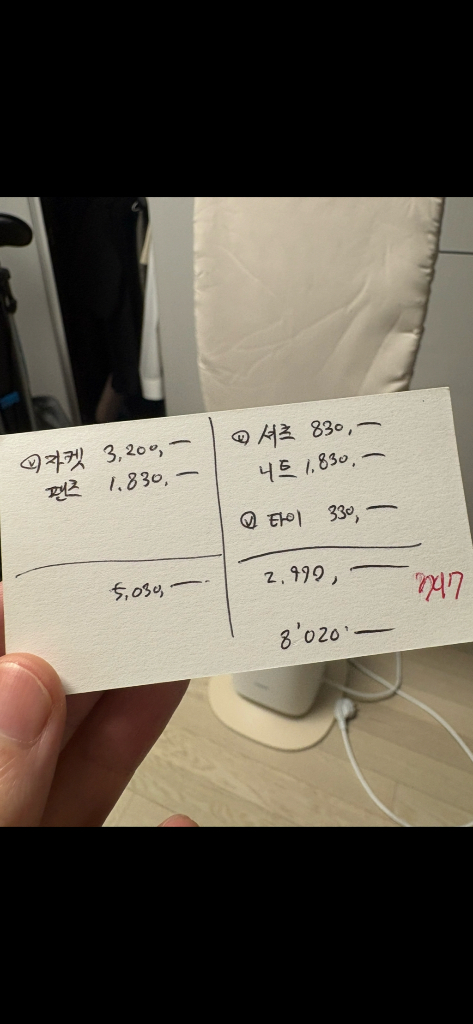 ⓥ자켓 3,200,—
팬츠 1.830.—
5,030,—
ⓥ 셔츠 830,—
니트 1,830.—
ⓥ 타이 330,—
2.990,—
8'020'—